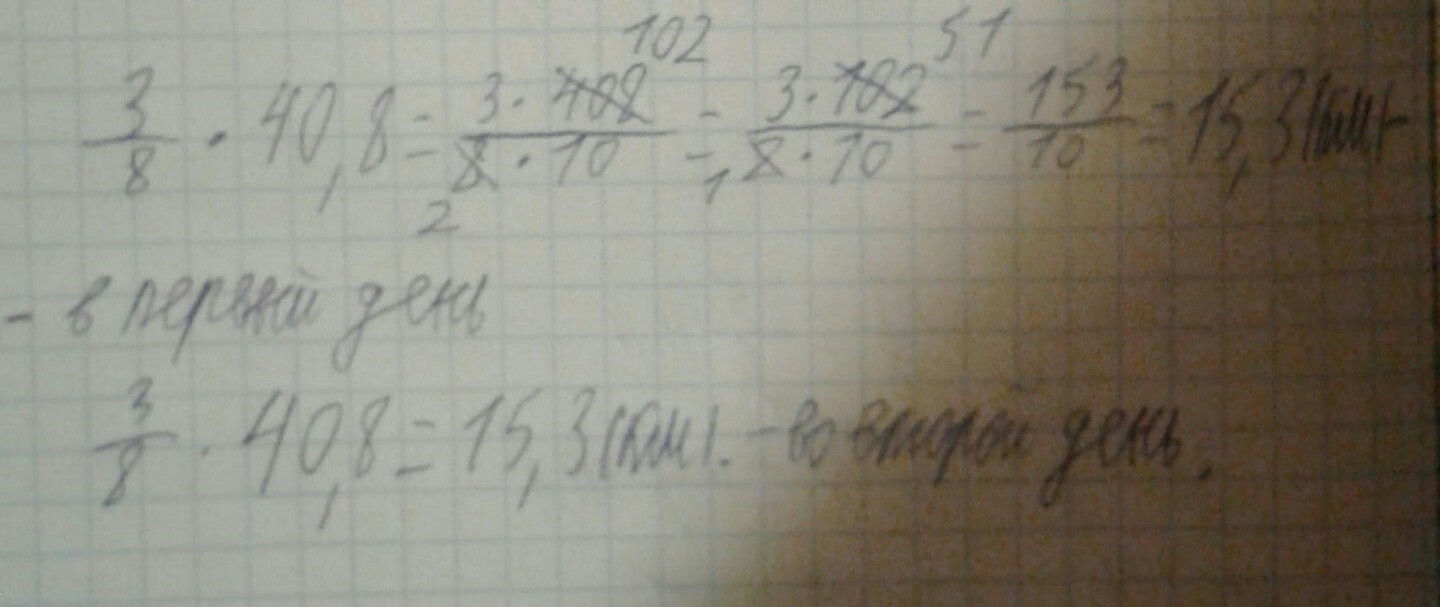 102 51
3/8 · 40,8 = 3·408/8·10 = 3·102/8·10 = 153/10 = 15,3 (км) -
2 1
- в первый день
3/8 · 40,8 = 15,3 (км). - во второй день.